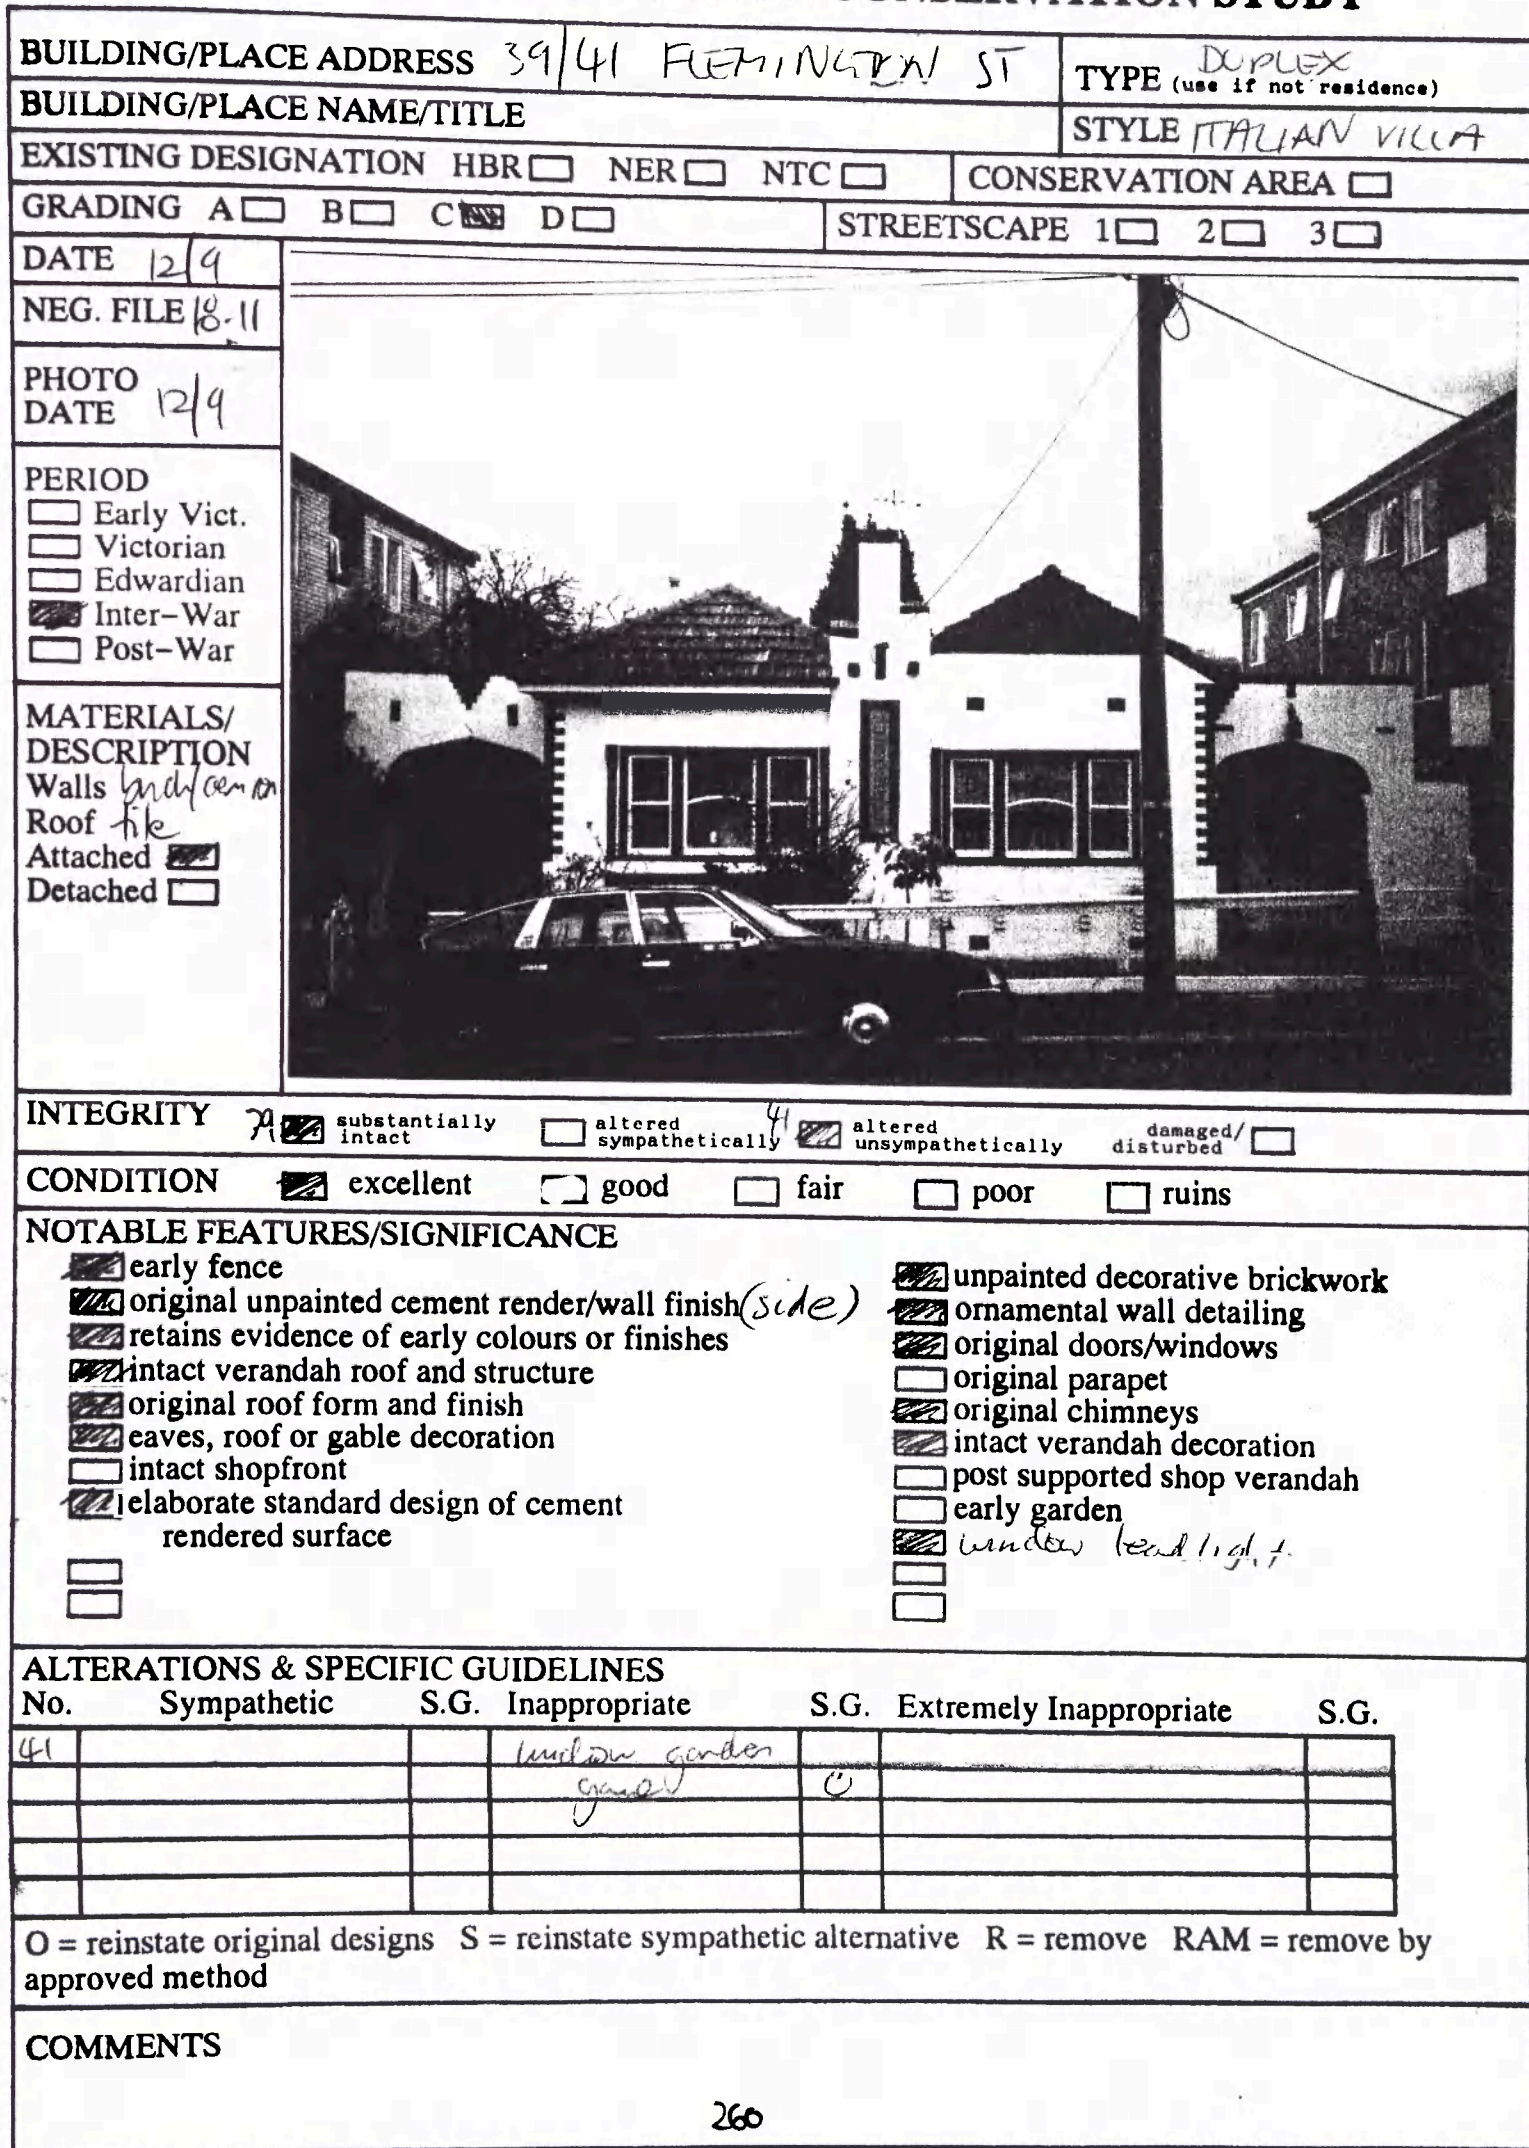 STUDY
BUILDING/PLACE ADDRESS 39/41 FLEMINGTON ST
TYPE DUPLEX (use if not residence)
BUILDING/PLACE NAME/TITLE
STYLE ITALIAN VILLA
EXISTING DESIGNATION HBR NER NTC
CONSERVATION AREA
GRADING A B C D
STREETSCAPE 1 2 3
DATE 12/9
NEG. FILE 18.11
PHOTO
DATE 12/9
PERIOD
Early Vict.
Victorian
Edwardian
Inter-War
Post-War
MATERIALS/
DESCRIPTION
Walls
Roof tile
Attached
Detached
INTEGRITY 39 substantially intact altered sympathetically 41 altered unsympathetically damaged/ disturbed
CONDITION excellent good fair poor ruins
NOTABLE FEATURES/SIGNIFICANCE
early fence
original unpainted cement render/wall finish (side)
retains evidence of early colours or finishes
intact verandah roof and structure
original roof form and finish
eaves, roof or gable decoration
intact shopfront
elaborate standard design of cement
rendered surface
unpainted decorative brickwork
ornamental wall detailing
original doors/windows
original parapet
original chimneys
intact verandah decoration
post supported shop verandah
early garden
window leadlight
ALTERATIONS & SPECIFIC GUIDELINES
No. Sympathetic S.G. Inappropriate S.G. Extremely Inappropriate S.G.
41 window garden
O
O = reinstate original designs S = reinstate sympathetic alternative R = remove RAM = remove by
approved method
COMMENTS
260